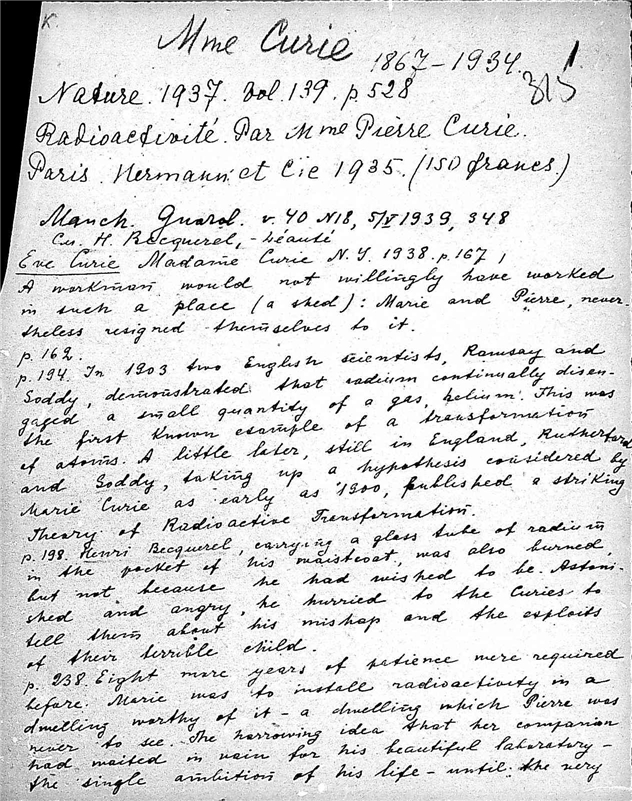 K
Mme Curie
1867–1934. 1.
315
Nature. 1937. Vol. 139. p. 528
Radioactivité. Par Mme Pierre Curie.
Paris. Hermann et Cie 1935. (150 francs.)
Manch. Guard. v. 40 N18, 5/V 1939, 348
См. H. Becquerel, – béauté
Eve Curie Madame Curie N.Y. 1938. p. 167,
A workman would not willingly have worked
in such a place (a shed): Marie and Pierre, never-
theless resigned themselves to it.
p. 162.
p. 194. In 1903 two English scientists, Ramsay and
Soddy, demonstrated that radium continually disen-
gaged a small quantity of a gas, helium. This was
the first known example of a transformation
of atoms. A little later, still in England, Rutherford
and Soddy, taking up a hypothesis considered by
Marie Curie as early as 1900, published a striking
Theory of Radioactive Transformation.
p. 198. Henri Becquerel, carrying a glass tube of radium
in the pocket of his waistcoat, was also burned,
but not because he had wished to be. Astoni-
shed and angry, he hurried to the Curies to
tell them about his mishap and the exploits
of their terrible child.
p. 238. Eight more years of patience were required
before Marie was to install radioactivity in a
dwelling worthy of it – a dwelling which Pierre was
never to see. The harrowing idea that her companion
had waited in vain for his beautiful laboratory –
the single ambition of his life – until the very